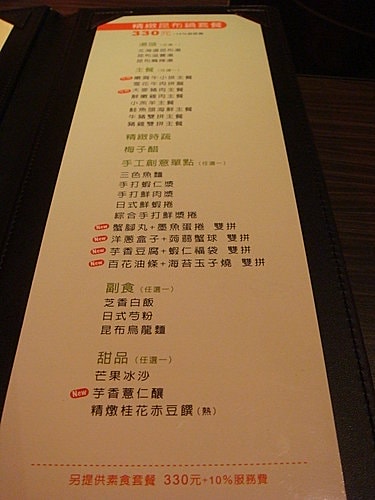 精緻昆布鍋套餐
330元
湯頭（任選一）
主餐（任選一）
小羔羊主餐
鮭魚蛋海鮮主餐
牛豬雙拼主餐
豬雞雙拼主餐
精緻時蔬
梅子醋
手工創意單點（任選一）
三色魚麵
手打蝦仁漿
手打鮮肉漿
日式鮮蝦捲
綜合手打鮮漿捲
New 蟹腳丸+墨魚蛋捲 雙拼
New 洋蔥盒子+蒟蒻蟹球 雙拼
New 芋香豆腐+蝦仁福袋 雙拼
New 百花油條+海苔玉子燒 雙拼
副食（任選一）
芝香白飯
日式芍粉
昆布烏龍麵
甜品（任選一）
芒果冰沙
New 芋香薏仁釀
精燉桂花赤豆饌（熱）
另提供素食套餐 330元+10%服務費